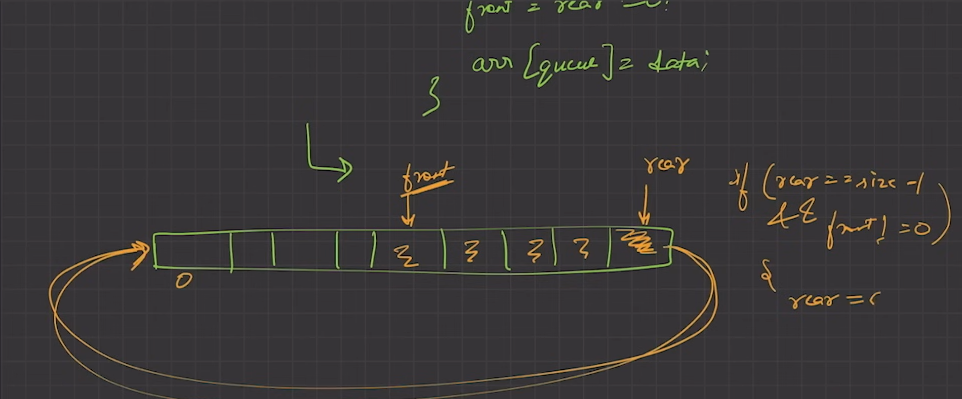 front = rear = 0;
arr [queue] = data;
}
front
rear
if (rear == size - 1
&& front != 0)
0
{
rear = 0